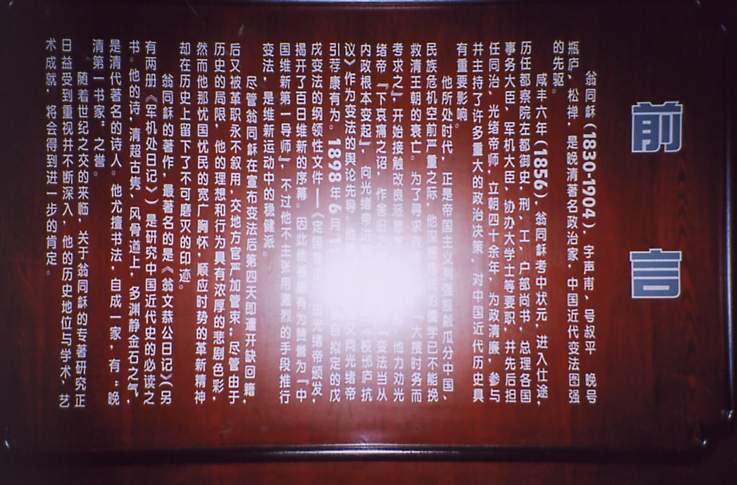 前 言
翁同龢(1830-1904),字声甫、号叔平 晚号
瓶庐、松禅,是晚清著名政治家,中国近代变法图强
的先驱。
咸丰六年(1856)翁同龢考中状元,进入仕途,
历任都察院左都御史,刑、工、户部尚书,总理各国
事务大臣,军机大臣,协办大学士等要职,并先后担
任同治,光绪帝师,立朝四十余年,为政清廉,参与
并主持了许多重大的政治决策,对中国近代历史具
有重要影响。
他所处时代,正是帝国主义瓜分中国、
民族危机空前严重之际,他深的儒学已不能挽
救清王朝的衰亡。为了寻求“大搜时务而
考求之”,开始接触改良他力劝光
绪帝“下哀痛之诏,作舍旧“变法当从
内政根本变起”,向光绪帝校邠庐抗
议》作为变法的舆论先导向光绪帝
引荐康有为。1898年6月拟定的戊
戌变法的纲领性文件——《定国光绪帝颁发,
揭开了百日维新的序幕。因此有为赞誉为“中
国维新第一导师”,不过他不主张用激烈的手段推行
变法,是维新运动中的稳健派。
尽管翁同龢在宣布变法后第四天即遭开缺回籍,
后又被革职永不叙用,交地方官严加管束;尽管由于
历史的局限,他的理想和行为具有浓厚的悲剧色彩,
然而他那忧国忧民的宽广胸怀,顺应时势的革新精神
却在历史上留下了不可磨灭的印迹。
翁同龢的著作,最著名的是《翁文恭公日记》(另
有两册《军机处日记》)是研究中国近代史的必读之
书。他的诗,清超古隽,风骨遒上,多渊静金石之气,
是清代著名的诗人。他尤擅书法,自成一家,有“晚
清第一书家”之誉。
随着世纪之交的来临,关于翁同龢的专著研究正
日益受到重视并不断深入,他的历史地位与学术、艺
术成就,将会得到进一步的肯定。